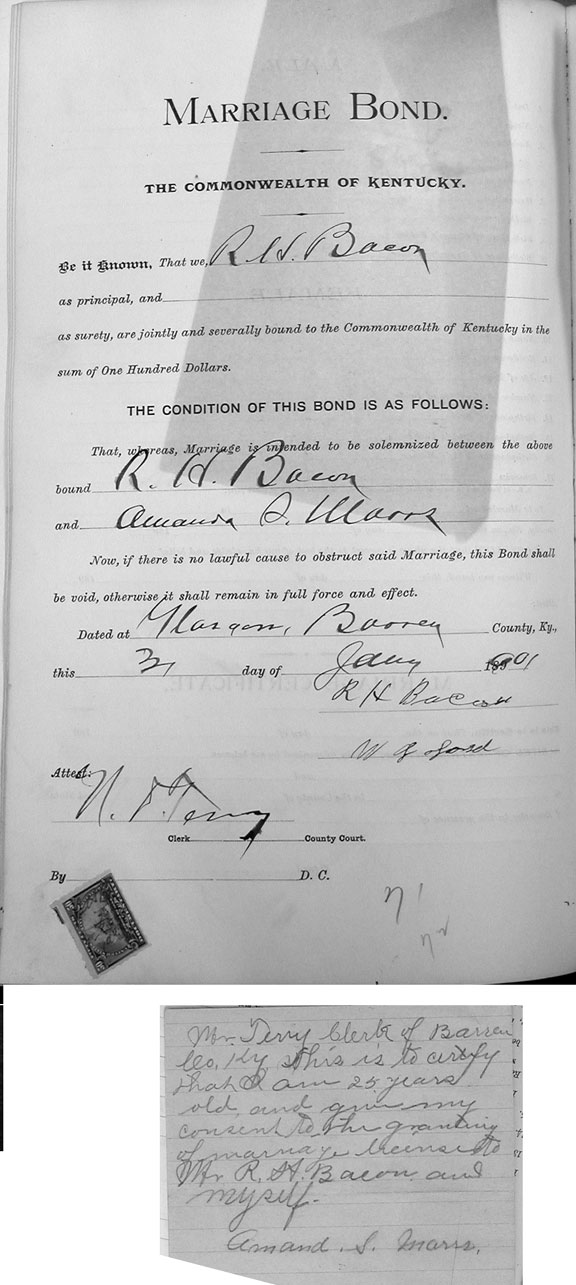 MARRIAGE BOND.
THE COMMONWEALTH OF KENTUCKY.
Be it Known, That we, R. H. Bacon
as principal, and
as surety, are jointly and severally bound to the Commonwealth of Kentucky in the
sum of One Hundred Dollars.
THE CONDITION OF THIS BOND IS AS FOLLOWS:
That, whereas, Marriage is intended to be solemnized between the above
bound R. H. Bacon
and Amanda S. Marrs
Now, if there is no lawful cause to obstruct said Marriage, this Bond shall
be void, otherwise it shall remain in full force and effect.
Dated at Glasgow, Barren County, Ky.,
this day of Jany 1901
R H Bacon
W
Attest:
N. T. Terry
Clerk County Court.
By D. C.
Mr. Terry Clerk of Barren
Co, Ky, this is to certify
that I am 25 years
old, and give my
consent to the granting
of marriage license to
Mr. R. H. Bacon and
myself.
Amand. S. Marrs.